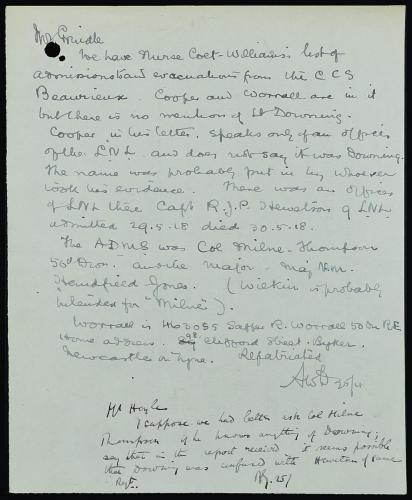 Mr Grindle
We have Nurse Coet-Williams's list of
admissions and evacuations from the CCS
Beaurieux. Cooper and Worrall are in it
but there is no mention of Lt Downing.
Cooper in his letter, speaks only of an officer
of the L.N.L. and does not say it was Downing.
The name was probably put in by whoever
took his evidence. There was an officer
of LNL there Capt R.J.P. Hewetson 9 LNL
admitted 29.5.18 died 30.5.18.
The A.D.M.S was Col Milne-Thompson
50th Divn. and the Major Maj H.M.
Handfield Jones. (Wilkin is probably
intended for "Milne").
Worrall is 463055 Sapper R. Worrall 50 Dn RE
Home address. 98 Clifford Street. Byker.
Newcastle on Tyne. Repatriated
25/4
Mr Hoyle
I suppose we had better ask Col Milne
Thompson if he knows anything of Downing,
say that in the report received it seems possible
that Downing was confused with Hewetson of same
Regt. 25/